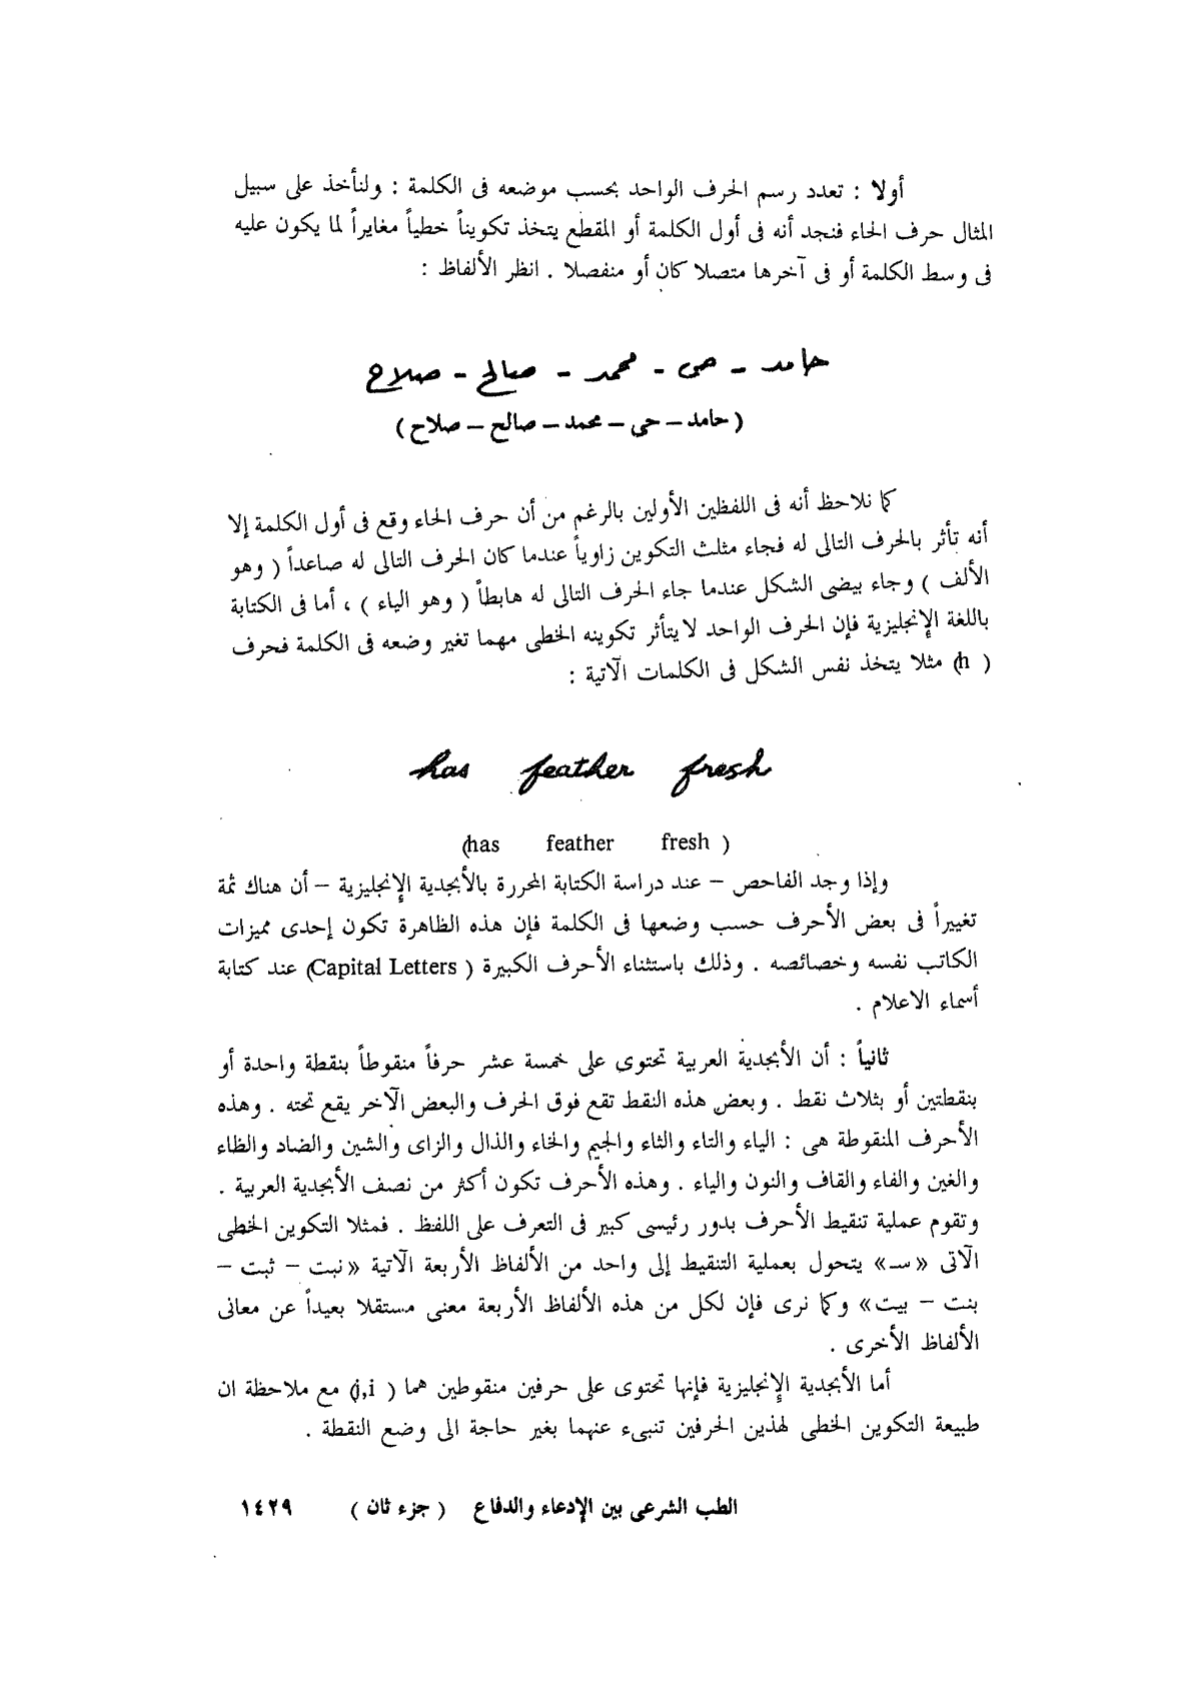 أولا : تعدد رسم الحرف الواحد بحسب موضعه فى الكلمة : ولنأخذ على سبيل
المثال حرف الحاء فنجد أنه فى أول الكلمة أو المقطع يتخذ تكويناً خطياً مغايراً لما يكون عليه
فى وسط الكلمة أو فى آخرها متصلا كان أو منفصلا . انظر الألفاظ :
حامد - حى - محمد - صالح - صلاح
( حامد – حى – محمد – صالح – صلاح )
كما نلاحظ أنه فى اللفظين الأولين بالرغم من أن حرف الحاء وقع فى أول الكلمة إلا
أنه تأثر بالحرف التالى له فجاء مثلث التكوين زاوياً عندما كان الحرف التالى له صاعداً ( وهو
الألف ) وجاء بيضى الشكل عندما جاء الحرف التالى له هابطاً ( وهو الياء ) ، أما فى الكتابة
باللغة الإنجليزية فإن الحرف الواحد لا يتأثر تكوينه الخطى مهما تغير وضعه فى الكلمة فحرف
( h ) مثلا يتخذ نفس الشكل فى الكلمات الآتية :
has feather fresh
(has feather fresh )
وإذا وجد الفاحص – عند دراسة الكتابة المحررة بالأبجدية الإنجليزية – أن هناك ثمة
تغييراً فى بعض الأحرف حسب وضعها فى الكلمة فإن هذه الظاهرة تكون إحدى مميزات
الكاتب نفسه وخصائصه . وذلك باستثناء الأحرف الكبيرة ( Capital Letters) عند كتابة
أسماء الاعلام .
ثانياً : أن الأبجدية العربية تحتوى على خمسة عشر حرفاً منقوطاً بنقطة واحدة أو
بنقطتين أو بثلاث نقط . وبعض هذه النقط تقع فوق الحرف والبعض الآخر يقع تحته . وهذه
الأحرف المنقوطة هى : الياء والتاء والثاء والجيم والخاء والذال والزاى والشين والضاد والظاء
والغين والفاء والقاف والنون والياء . وهذه الأحرف تكون أكثر من نصف الأبجدية العربية .
وتقوم عملية تنقيط الأحرف بدور رئيسى كبير فى التعرف على اللفظ . فمثلا التكوين الخطى
الآتى « » يتحول بعملية التنقيط إلى واحد من الألفاظ الأربعة الآتية « نبت – ثبت –
بنت – بيت» وكما نرى فإن لكل من هذه الألفاظ الأربعة معنى مستقلا بعيداً عن معانى
الألفاظ الأخرى .
أما الأبجدية الإنجليزية فإنها تحتوى على حرفين منقوطين هما ( j,i) مع ملاحظة ان
طبيعة التكوين الخطى لهذين الحرفين تنبىء عنهما بغير حاجة الى وضع النقطة .
الطب الشرعى بين الإدعاء والدفاع ( جزء ثان ) ١٤٢٩